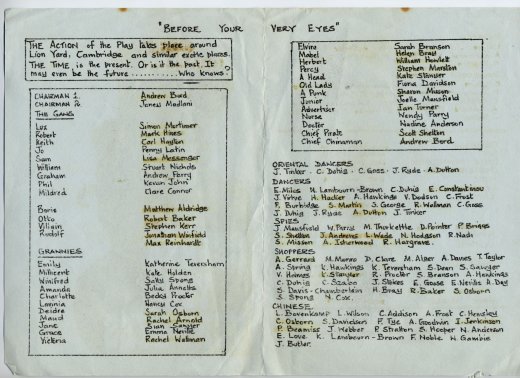 "BEFORE YOUR VERY EYES"
THE ACTION of the Play takes place around
Lion Yard, Cambridge and similar exotic places.
THE TIME is the present. Or is it the past. It
may even be the future ......... Who knows?
CHAIRMAN 1. Andrew Burd
CHAIRMAN 2. James Madlani
THE GANG
Luz Simon Mortimer
Robert Mark Hines
Keith Carl Hayton
Jo Penny Latin
Sam Lisa Messenger
William Stuart Nichols
Graham Andrew Ferry
Phil Kevan John
Mildred Clare Connor
Boris Matthew Aldridge
Otto Robert Baker
Villain Stephen Kerr
Rudolf Jonathan Winfield
Max Reinhardt
GRANNIES
Emily Katherine Teversham
Millicent Kate Holden
Winifred Sally Spong
Amanda Julia Anthony
Charlotte Becky Proctor
Lavinia Nancy Cox
Deidre Sarah Osborn
Maud Rachel Arnold
Jane Sian Sawyer
Grace Emma Neville
Victoria Rachel Wallman
Elvira Sarah Branson
Mabel Helen Bray
Herbert William Howlett
Percy Stephen Marston
A Head Kate Stanyer
Old Lady Fiona Davidson
A Punk Sharon Misson
Junior Joelle Mansfield
Advertiser Ian Turner
Nurse Wendy Parry
Doctor Nadine Anderson
Chief Pirate Scott Shelton
Chief Chinaman Andrew Burd
ORIENTAL DANCERS
J. Tinker. C. Duhig. C. Goss. J. Ryde. A. Dutton
DANCERS
E. Miles H. Lambourn-Brown C. Duhig E. Constantinou
J. Virtue H. Hacker A. Hawkings V. Dodson C. Frost
F. Burbidge S. Martin S. George R. Wallman C. Goss
J. Duhig J. Ryde A. Dutton J. Tinker
SPIES
J. Mansfield W. Parry M. Thorkettle D. Pointer P. Briggs
S. Shelton J. Andrews L. Wade H. Hodgson R. Nash
S. Misson A. Isherwood R. Hargrave.
SHOPPERS
A. Gerrard M. Munro D. Clare M. Alper A. Davies T. Taylor
A. String K. Hawkings K. Teversham S. Dean S. Sawyer
V. Holmes K. Stanyer R. Proctor S. Branson A. Hawkings
C. Duhig C. Szabo J. Stokes E. Goose E. Neville A. Dey
S. Davis-Chamberlain H. Bray R. Baker S. Osborn
S. Spong N. Cox.
CHINESE
L. Bavenkamp L. Wilson C. Addison A. Frost C. Hensley
C. Osborn S. Davidson P. Tye A. Goodwin I. Jenkinson
P. Beamiss J. Webber P. Stratton S. Hooper N. Anderson
E. Love K. Lambourn-Brown F. Noble N. Gambie
J. Butler.